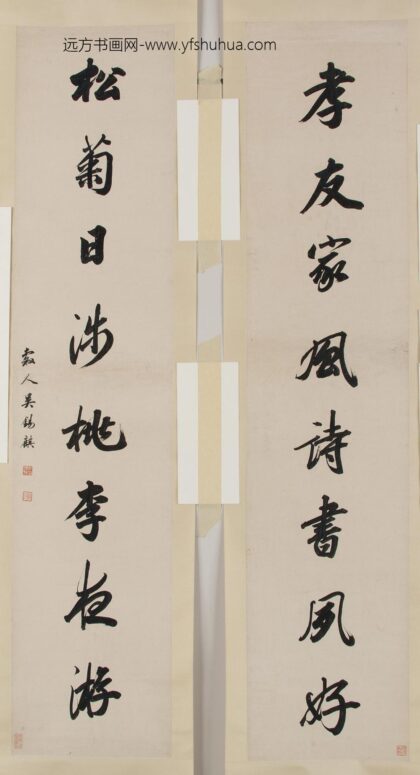 远方书画网-www.yfshuhua.com
孝友家風詩書夙好
松菊日涉桃李夜游
穀人吳錫麒